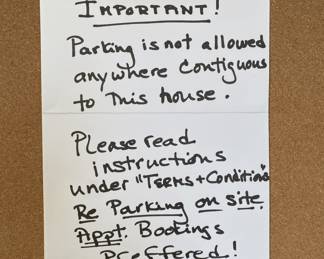 IMPORTANT!
Parking is not allowed
anywhere Contiguous
to This house.
Please read
instructions
under "Terms + Conditions"
Re Parking on site.
Appt. Bookings
Preffered!